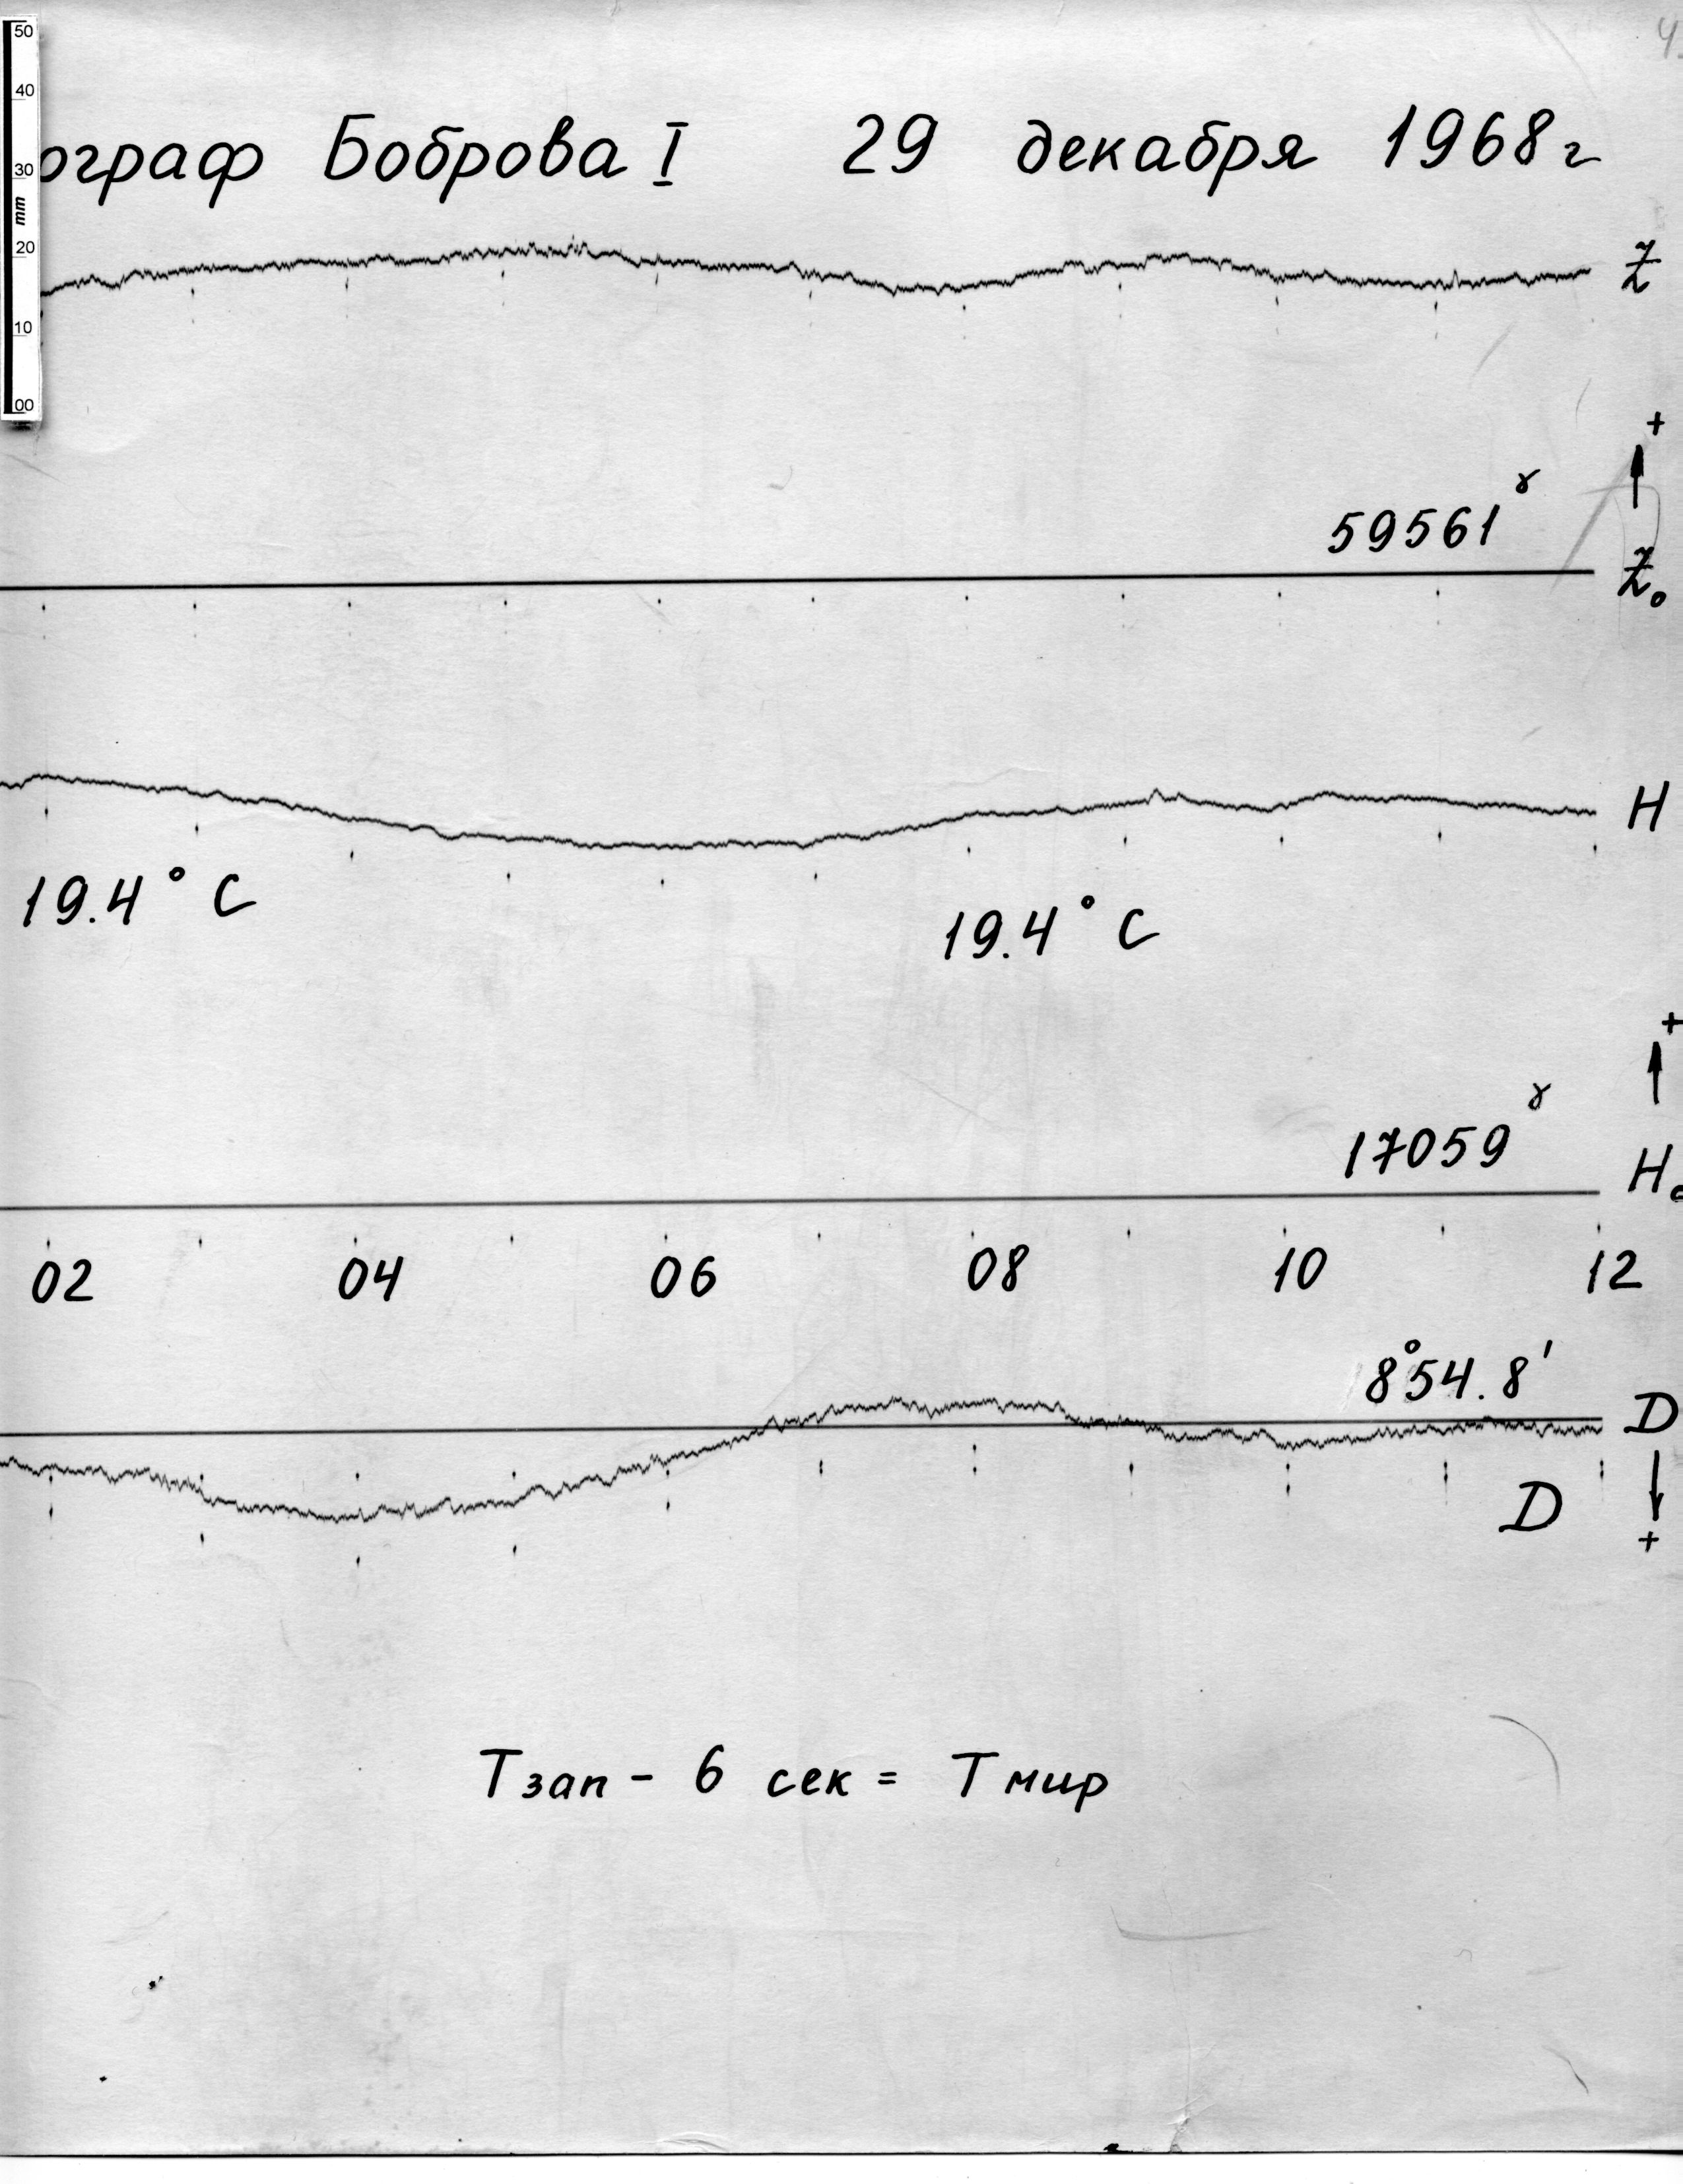 50
40
30
mm
20
10
00
4
ограф Боброва I 29 декабря 1968 г
Z
+
59561 γ
Z₀
H
19.4° C
19.4° C
+
17059 γ
H₀
02 04 06 08 10 12
8°54.8'
D
D
+
Tзап - 6 сек = Tмир